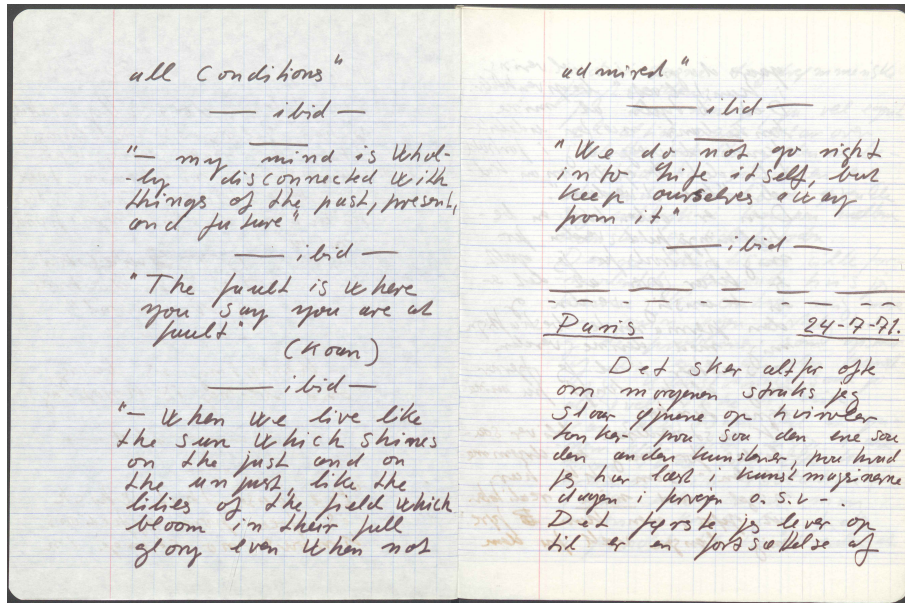 all conditions"
— ibid —
"— my mind is whol-
-ly disconnected with
things of the past, present,
and future"
— ibid —
"The fault is where
you say you are at
fault"
(Koan)
— ibid —
"— When we live like
the sun which shines
on the just and on
the unjust, like the
lilies of the field which
bloom in their full
glory even when not
admired"
— ibid —
"We do not go right
into life itself, but
keep ourselves away
from it"
— ibid —
Paris 24-7-71.
Det sker altfor ofte
om morgenen straks jeg
slaar øjnene op hvirvler
tanker paa saa den ene saa
den anden kunstner, paa hvad
jeg har læst i kunstmagasinerne
dagen i forvejen o.s.v –
Det første jeg lever op
til er en fortsættelse af